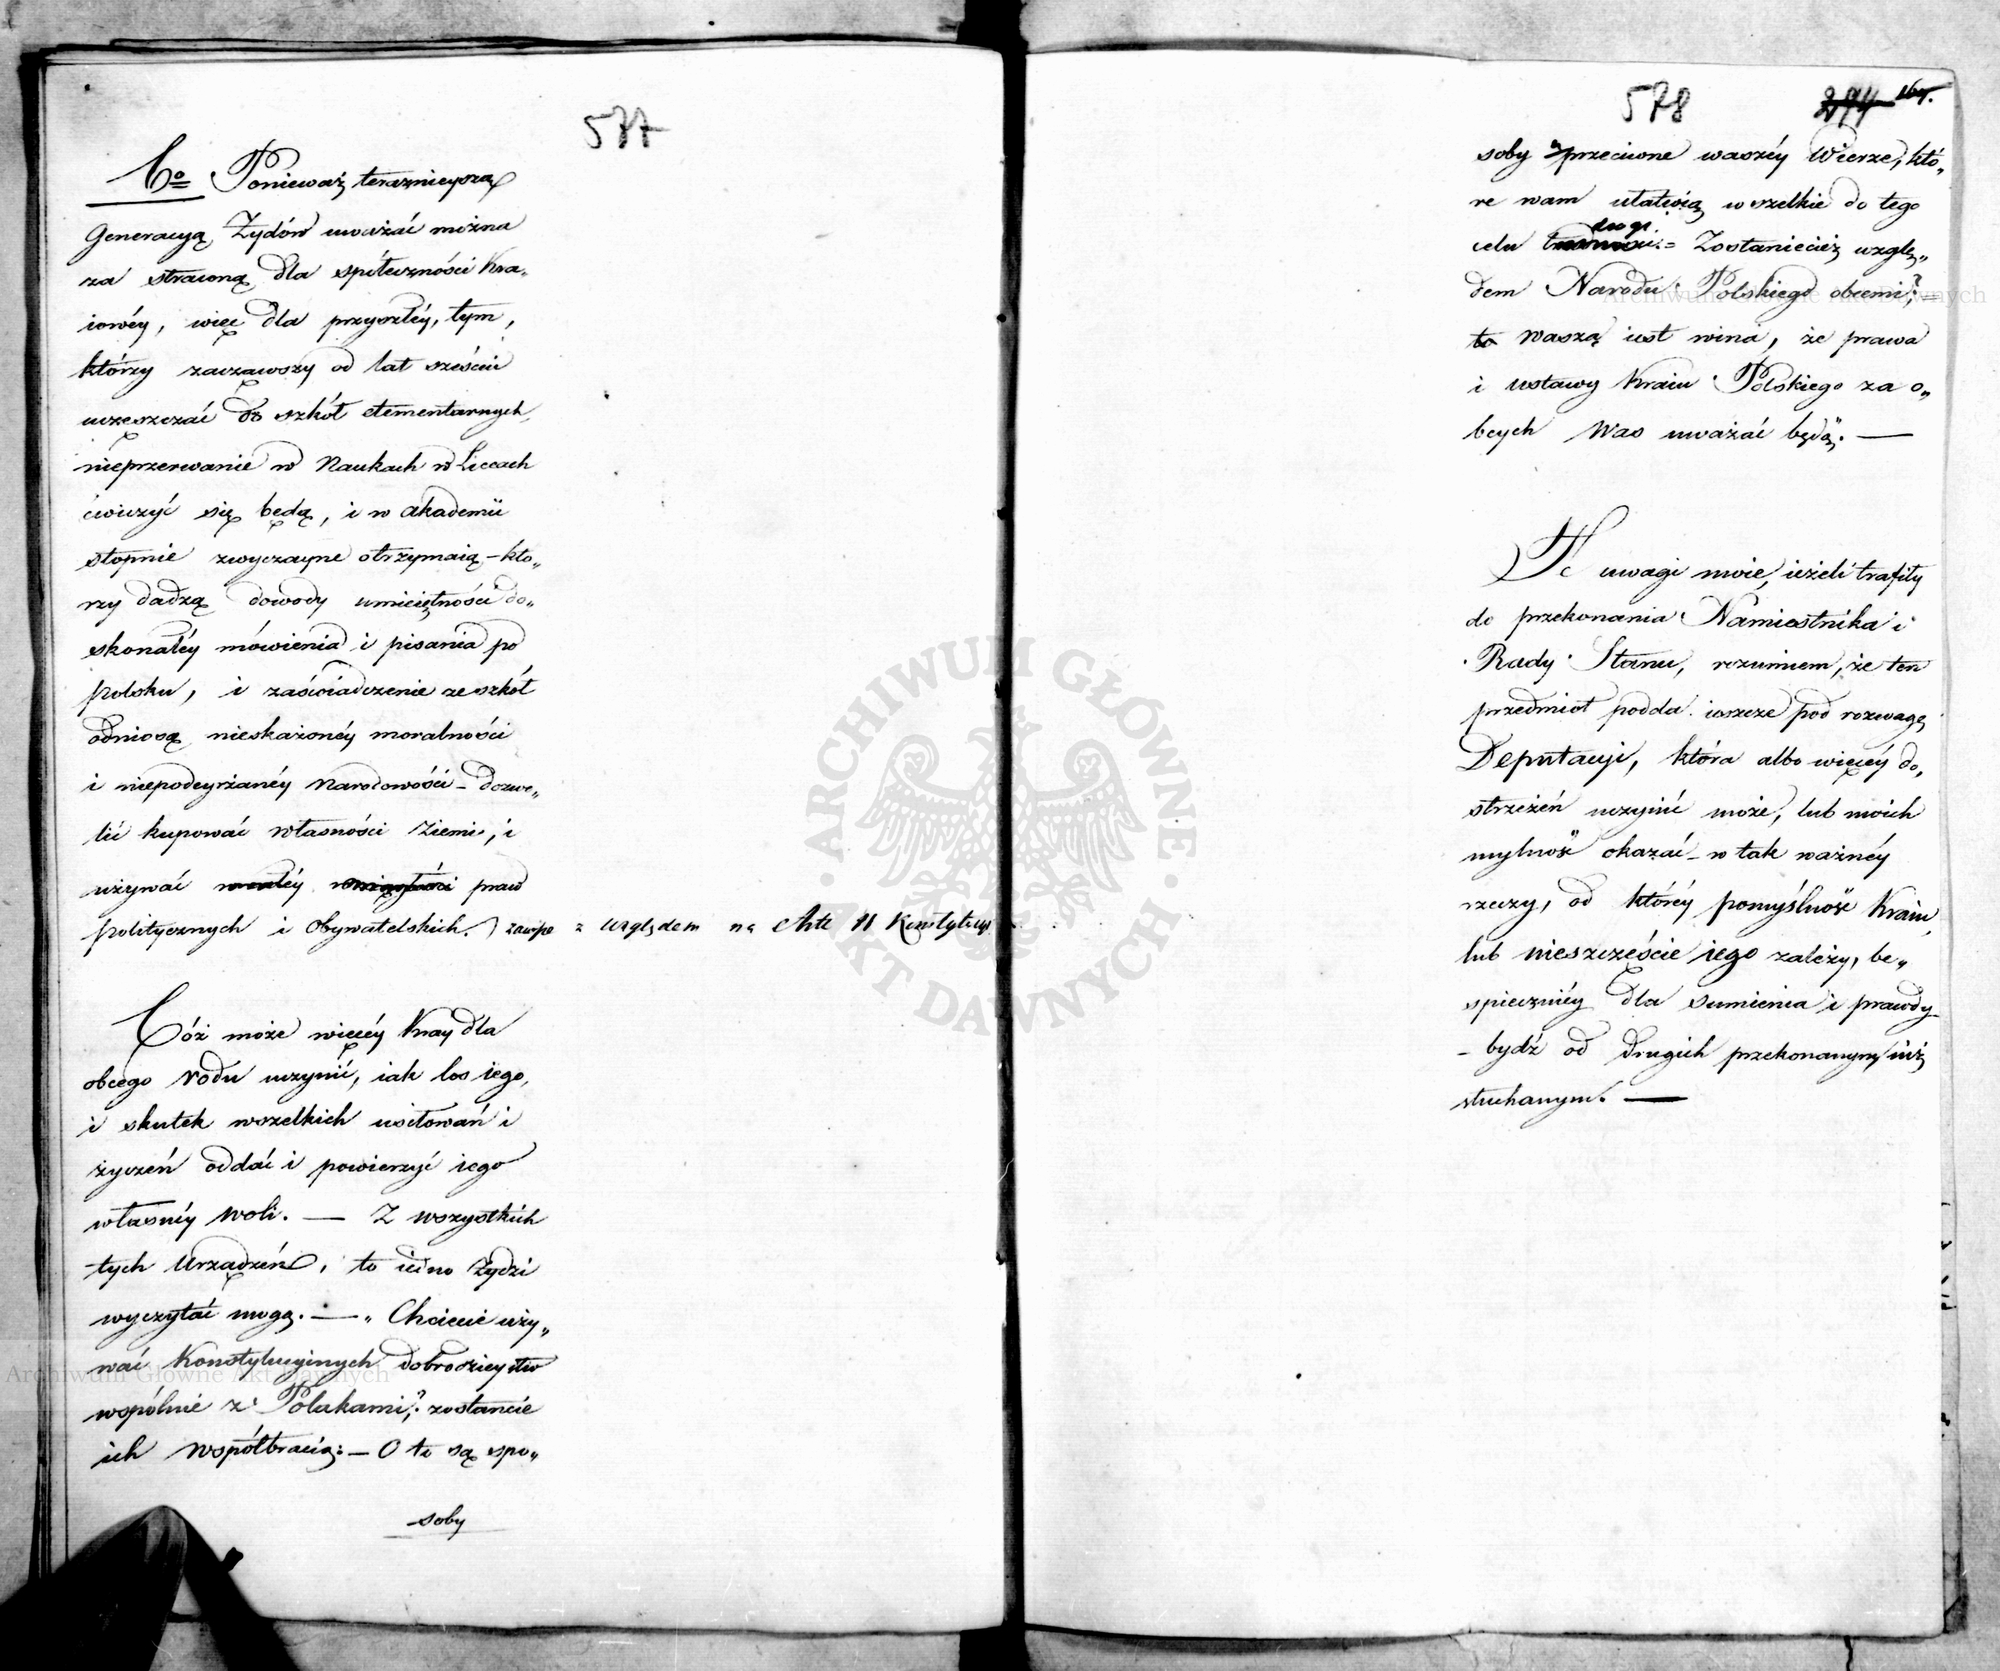 577
6o Ponieważ teraznieyszą
Generacyą Żydów uważać można
za straconą dla społeczności kra„
iowéy, więc dla przyszłéy, tym,
którzy zacząwszy od lat sześciu
uczęszczać do szkół elementarnych,
nieprzerwanie w Naukach w Liceach
ćwiczyć się będą, i w akademii
stopnie zwyczayne otrzymaią – któ„
rzy dadzą dowody umieiętności do„
skonałéy mówienia i pisania po
polsku, i zaświadczenie ze szkół
odniosą nieskażonéy moralności
i niepodeyrzanéy Narodowości – dozwo„
lić kupować własności Ziemi, i
używać praw
politycznych i Obywatelskich. zawsze z względem na Art 11 Konstytucyi
Cóż może więcéy Kray dla
obcego rodu uczynić, iak los iego,
i skutek wszelkich usiłowań i
życzeń oddać i powierzyć iego
własnéy woli. — Z wszystkich
tych Urządzeń, to iedno Żydzi
wyczytać mogą. — „Chcecie uży„
wać Konstytucyinych dobrodzieystw
wspólnie z Polakami,? zostańcie
ich współbracią: – O to są spo„
soby
578
274 164.
soby nie przeciwne waszéy Wierze, któ„
re wam ułatwią wszelkie do tego
celu drogi. = Zostaniecież wzglę„
dem Narodu Polskiego obcemi,? –
to Waszą iest winą, że prawa
i ustawy Kraiu Polskiego za o„
bcych Was uważać będą. —
Te uwagi moie, ieżeli trafiły
do przekonania Namiestnika i
Rady Stanu, rozumiem, że ten
przedmiot podda ieszcze pod rozwagę
Deputacyi, która albo więcéy do„
strzeżeń uczynić może, lub moich
mylność okazać – w tak ważnéy
rzeczy, od któréy pomyślność Kraiu,
lub nieszczęście iego zależy, be„
spieczniéy dla sumienia i prawdy
– bydź od drugich przekonanym, niż
słuchanym. —
ARCHIWUM GŁÓWNE AKT DAWNYCH
Archiwum Główne Akt Dawnych
Archiwum Główne Akt Dawnych